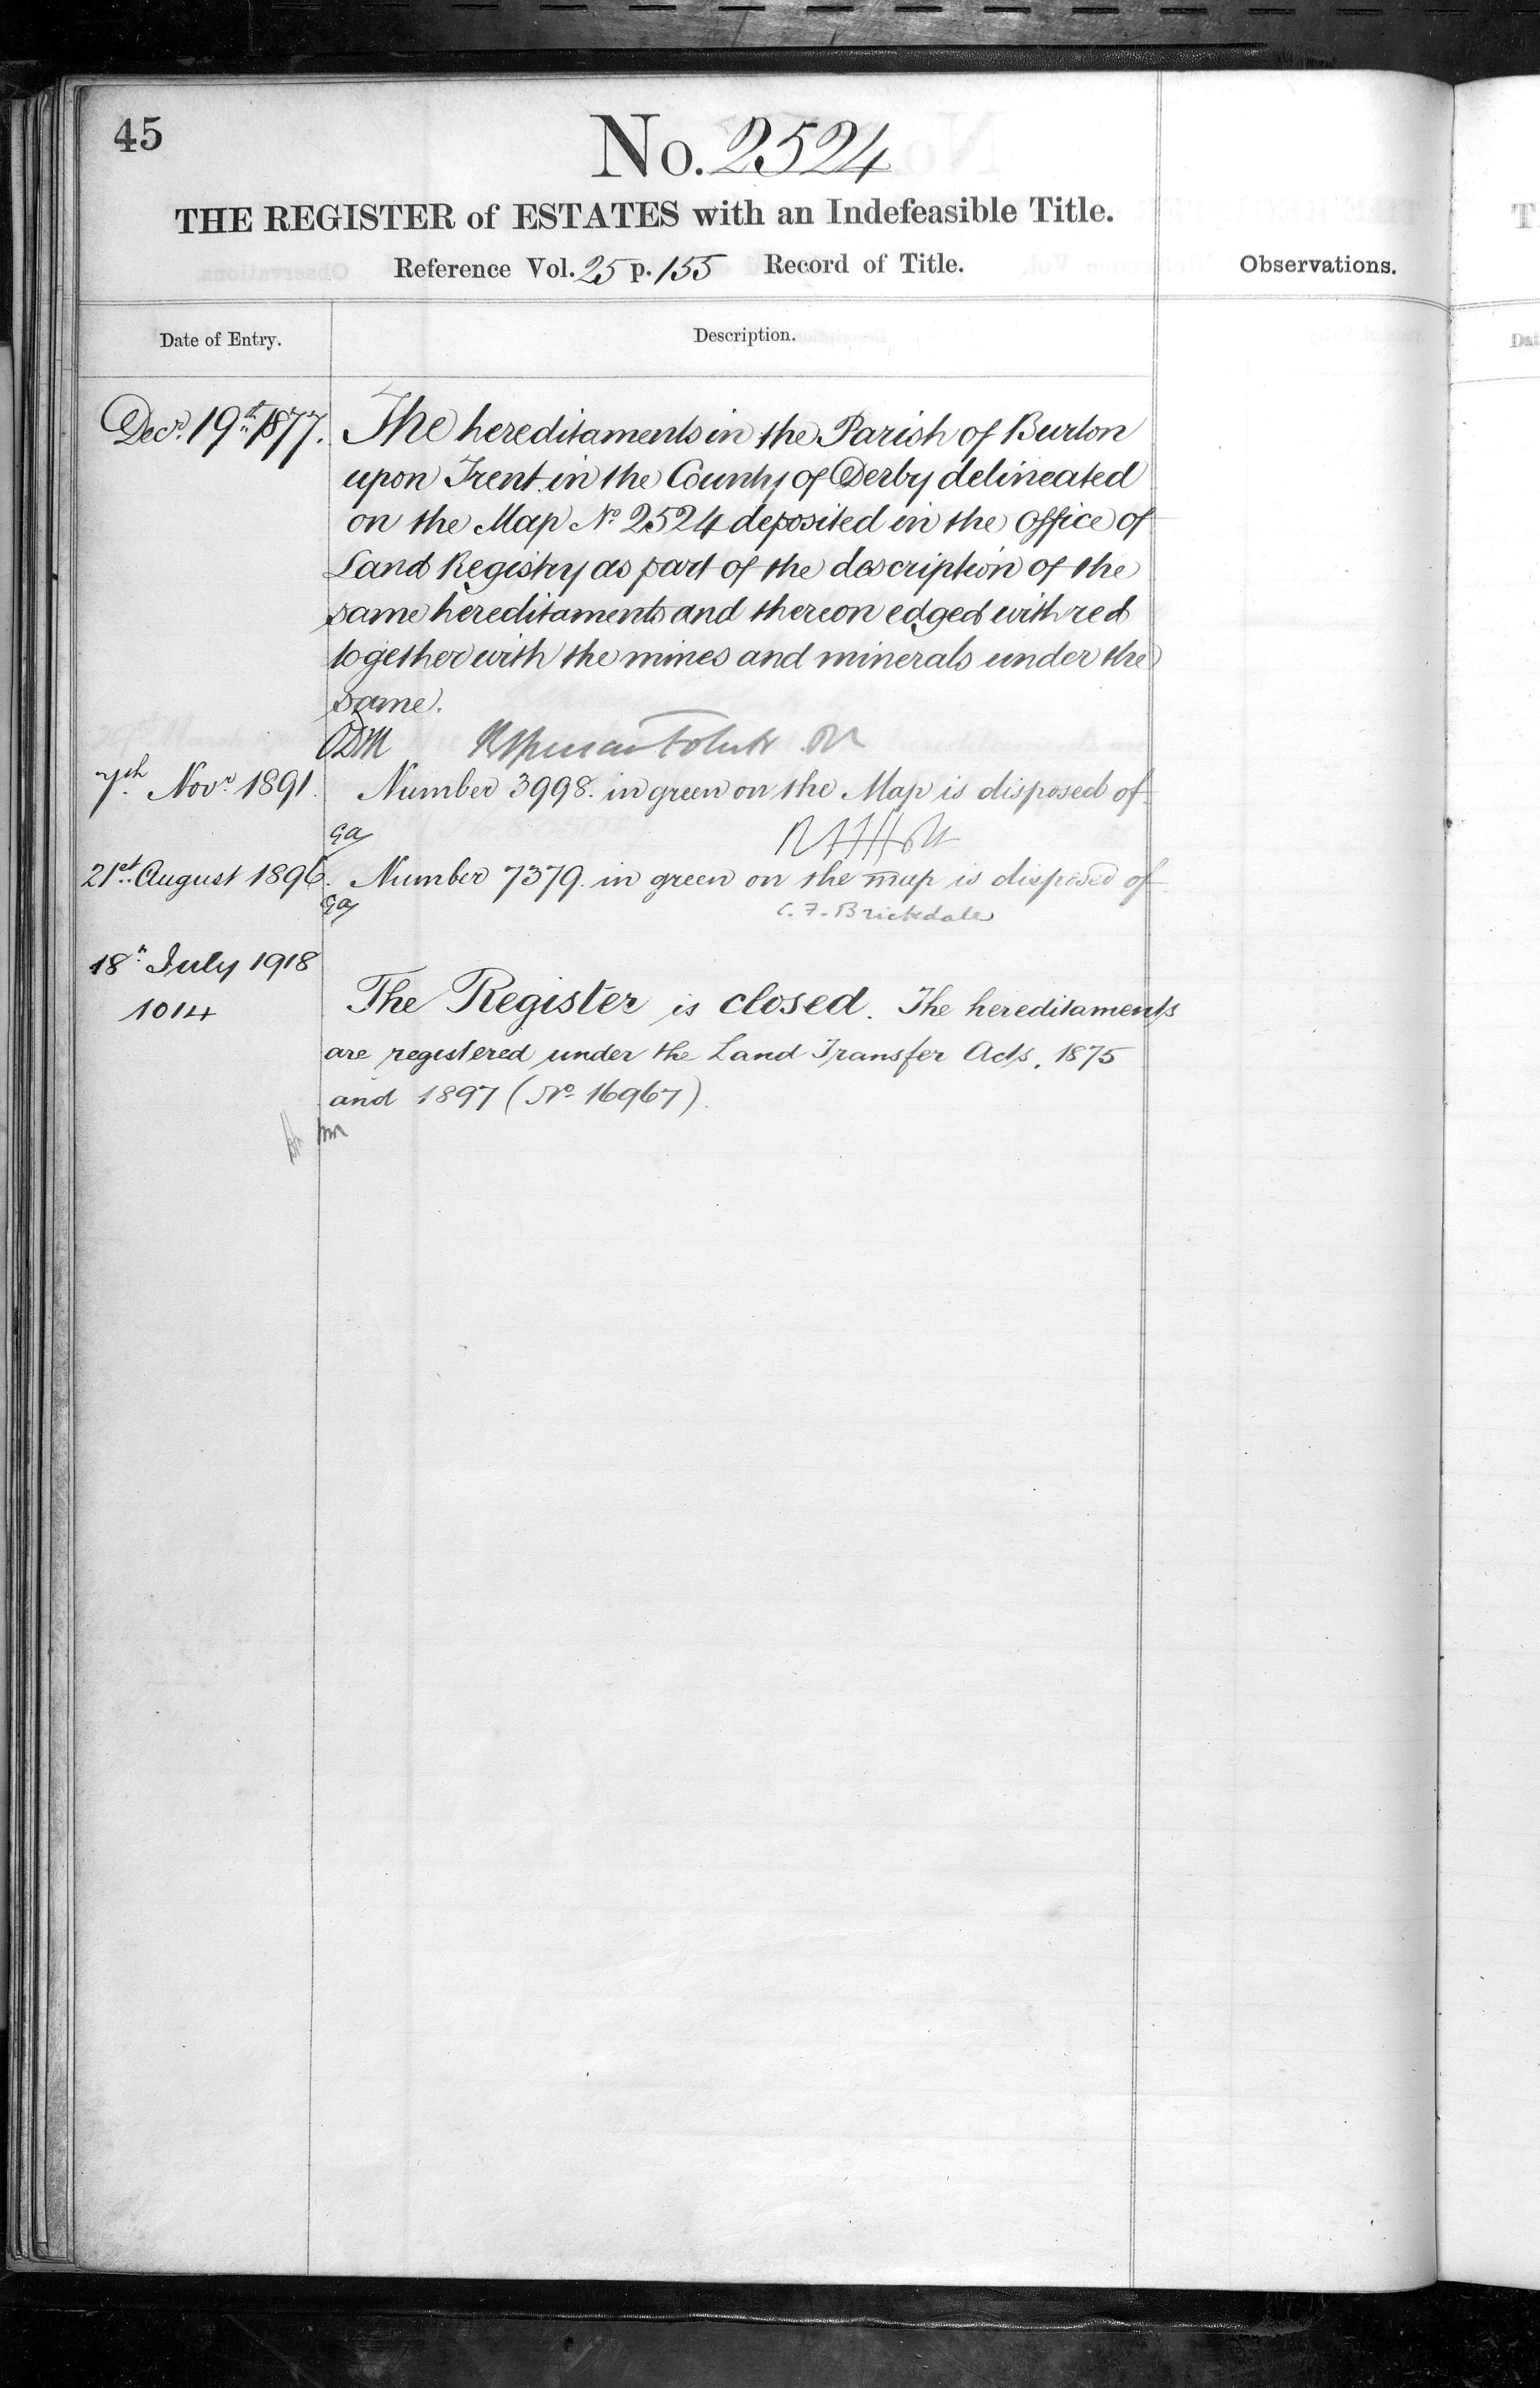 45
No. 2524
THE REGISTER of ESTATES with an Indefeasible Title.
Reference Vol. 25 p. 155 Record of Title.
Observations.
Date of Entry.
Description.
Decr. 19th 1877. The hereditaments in the Parish of Burton
upon Trent in the County of Derby delineated
on the Map No. 2524 deposited in the Office of
Land Registry as part of the description of the
same hereditaments and thereon edged with red
together with the mines and minerals under the
same.
7th Novr. 1891. Number 3998. in green on the Map is disposed of
GA
21st August 1896. Number 7379. in green on the map is disposed of
GA C. F. Brickdale
18th July 1918
1014 The Register is closed. The hereditaments
are registered under the Land Transfer Acts, 1875
and 1897 (No. 16967).